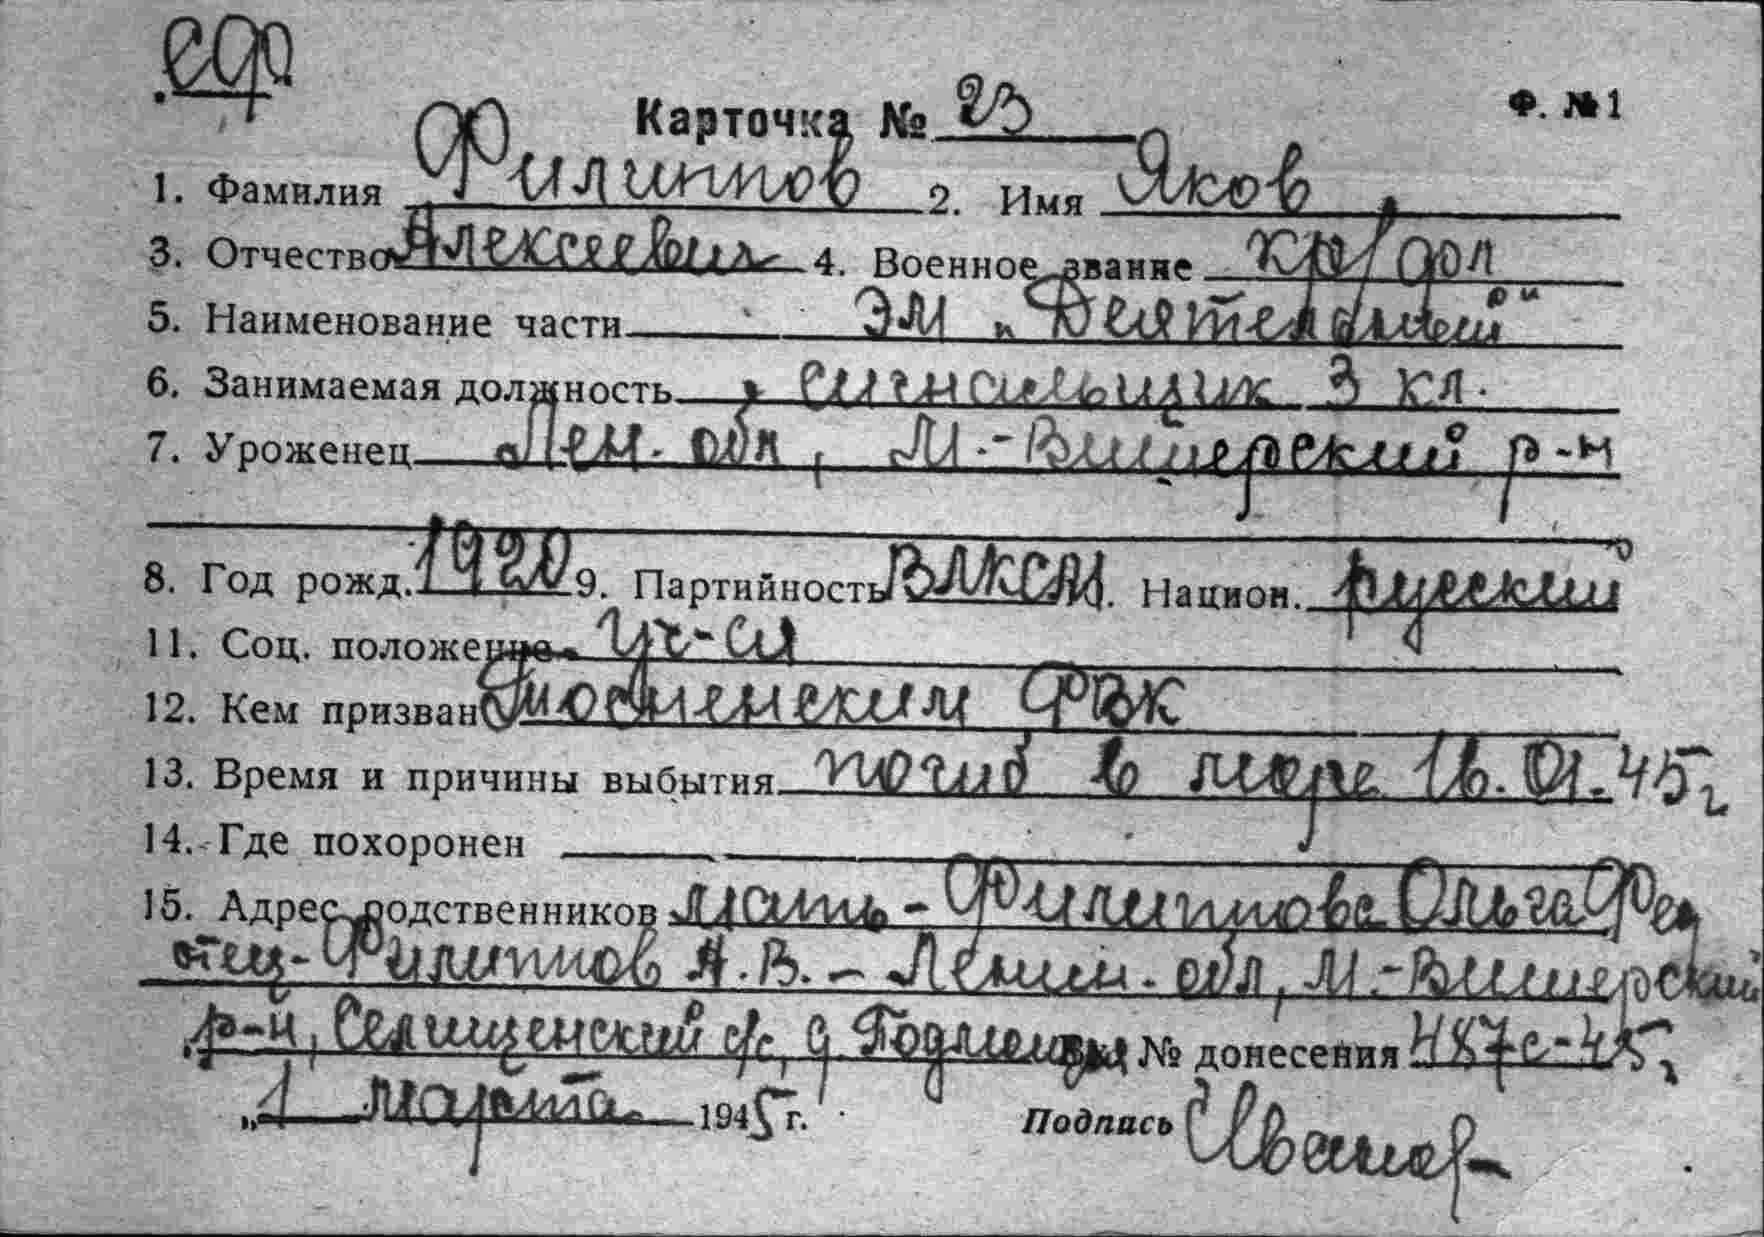 Карточка № 23 Ф. №1
1. Фамилия Филиппов 2. Имя Яков
3. Отчество Алексеевич 4. Военное звание кр/фл
5. Наименование части ЭМ „Деятельный“
6. Занимаемая должность сигнальщик 3 кл.
7. Уроженец Лен. обл, М.-Вишерский р-н
8. Год рожд. 1920 9. Партийность ВЛКСМ. Национ. русский
11. Соц. положение уч-ся
12. Кем призван Тосненским РВК
13. Время и причины выбытия погиб в море 16.01.45г
14. Где похоронен
15. Адрес родственников мать - Филиппова Ольга Фед
отец - Филиппов А.В. - Ленин. обл, М.-Вишерский
р-н, Селищенский с/с, д № донесения 487с-45г
„1 марта 1945 г. Подпись Иванов